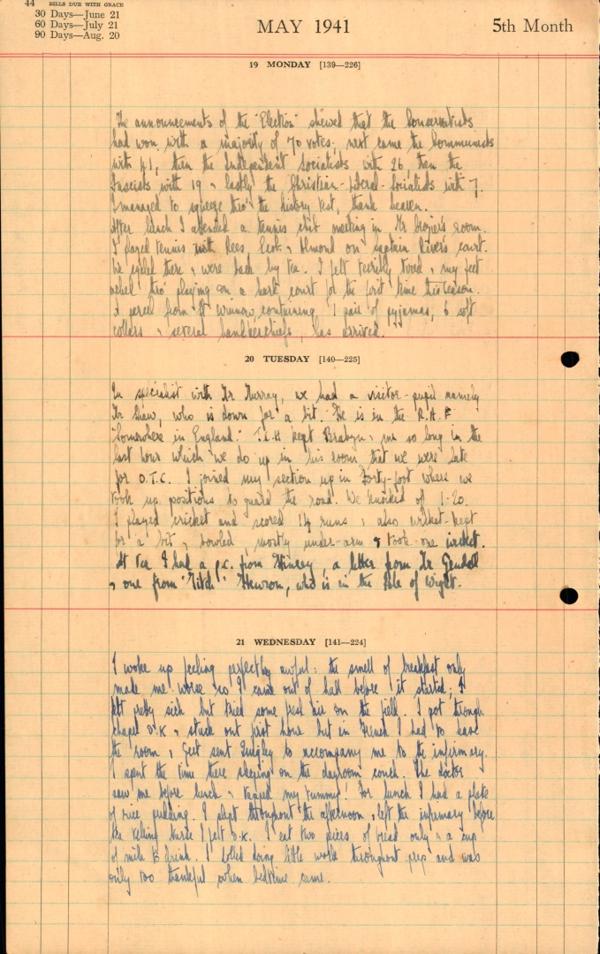 44 BILLS DUE WITH GRACE
30 Days—June 21
60 Days—July 21
90 Days—Aug. 20
MAY 1941
5th Month
19 MONDAY [139—226]
The announcements of the "Election" shewed that the Conservatives
had won with a majority of 70 votes; next came the Communists
with 41, then the Independent Socialists with 26, then the
Fascists with 19 & lastly the Christian-liberal-socialists with 7.
I managed to squeeze thro' the history test, thank heaven.
After lunch I attended a tennis club meeting in Mr room.
I played tennis with Rees, & on Captain River's court.
We cycled there & were back by tea. I felt terribly tired & my feet
ached thro' playing on a hard court for the first time this season.
A parcel from St Winnow, containing 1 pair of pyjamas, 6 soft
collars & several handkerchiefs, has arrived.
20 TUESDAY [140—225]
In specialist with Mr Murray, we had a visitor-pupil namely
Mr Shaw, who is down for a bit. He is in the R.A.F
"Somewhere in England." kept & me so long in the
last hour which we do up in his room that we were late
for O.T.C. I joined my section up in Forty-foot where we
took up positions to guard the road. We knocked off 1-20.
I played cricket and scored 14 runs; also wicket-kept
for a bit & bowled, mostly under-arm & took one wicket.
At tea I had a p.c. from , a letter from Mr Gendall
& one from "Titch" , who is in the Isle of Wight.
21 WEDNESDAY [141—224]
I woke up feeling perfectly awful: the smell of breakfast only
made me worse so I came out of hall before it started; I
felt sick but tried some fresh air on the field. I got through
chapel O.K & stuck out first hour but in French I had to leave
the room & sent Quigley to accompany me to the infirmary.
I spent the time there sleeping on the dayroom couch. The doctor
saw me before lunch & my tummy! For lunch I had a plate
of rice pudding. I slept throughout the afternoon & left the infirmary before
tea telling Nurse I felt O.K. I eat two pieces of bread only & a cup
of milk to drink. I lolled doing little work throughout prep and was
only too thankful when bedtime came.